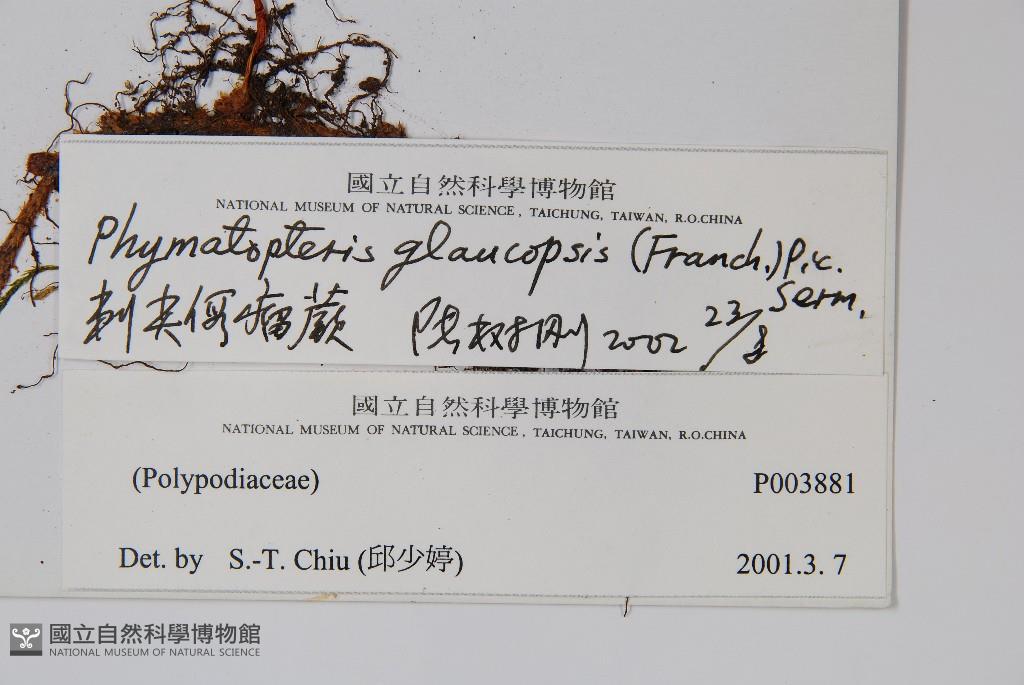 國立自然科學博物館
NATIONAL MUSEUM OF NATURAL SCIENCE, TAICHUNG, TAIWAN, R.O.CHINA
Phymatopteris glaucopsis (Franch.) Pic. Serm.
刺尖假瘤蕨 陆树刚 2002 23/8
國立自然科學博物館
NATIONAL MUSEUM OF NATURAL SCIENCE, TAICHUNG, TAIWAN, R.O.CHINA
(Polypodiaceae) P003881
Det. by S.-T. Chiu (邱少婷) 2001.3. 7
國立自然科學博物館
NATIONAL MUSEUM OF NATURAL SCIENCE